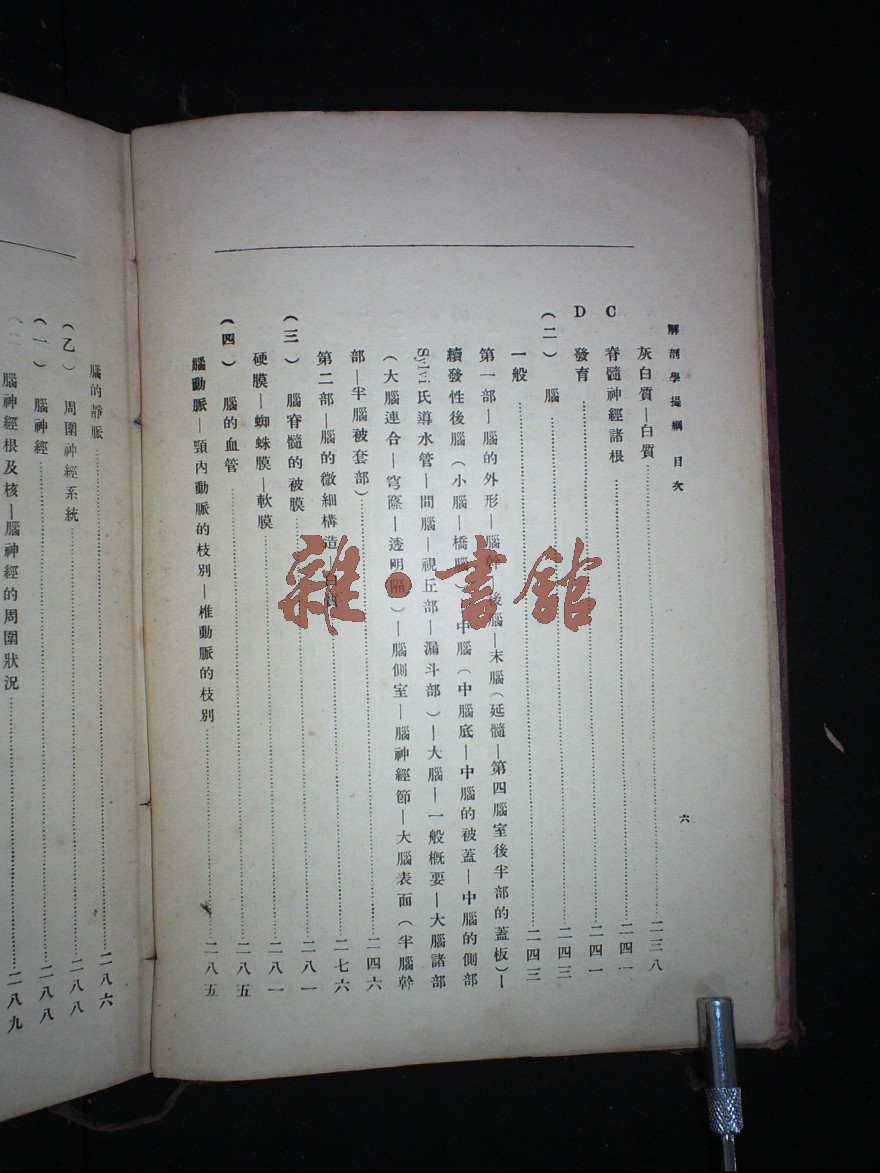 解剖學提綱 目次
六
灰白質—白質……二三八
C 脊髓神經諸根……二四一
D 發育……二四一
(二) 腦……二四三
一般……二四三
第一部—腦的外形—腦幹—後腦—末腦(延髓—第四腦室後半部的蓋板)—
續發性後腦(小腦—橋腦)中腦(中腦底—中腦的被蓋—中腦的側部
Sylvi氏導水管—間腦—視丘部—漏斗部)—大腦—一般概要—大腦諸部
(大腦連合—穹窿—透明隔)—腦側室—腦神經節—大腦表面(半腦幹
部—半腦被套部)……二四六
第二部—腦的微細構造—白質……二七六
(三) 腦脊髓的被膜……二八一
硬膜—蜘蛛膜—軟膜……二八一
(四) 腦的血管……二八五
腦動脈—頸內動脈的枝別—椎動脈的枝別……二八五
腦的靜脈……二八六
(乙) 周圍神經系統……二八八
(一) 腦神經……二八八
腦神經根及核—腦神經的周圍狀況……二八九
雜·書館